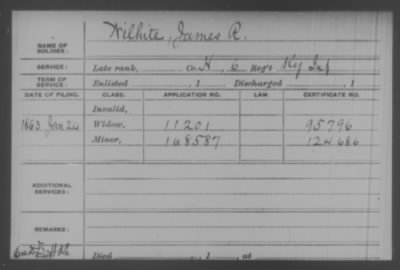 Wilhite, James R.
NAME OF SOLDIER:
SERVICE: Late rank, Co. H, 6 Reg't Ky Inf
TERM OF SERVICE: Enlisted , 1 Discharged , 1
DATE OF FILING. CLASS. APPLICATION NO. LAW. CERTIFICATE NO.
Invalid,
1863 Jan 24 Widow, 11201 95796
Minor, 168587 124686
ADDITIONAL SERVICES:
REMARKS:
Died , 1 , at